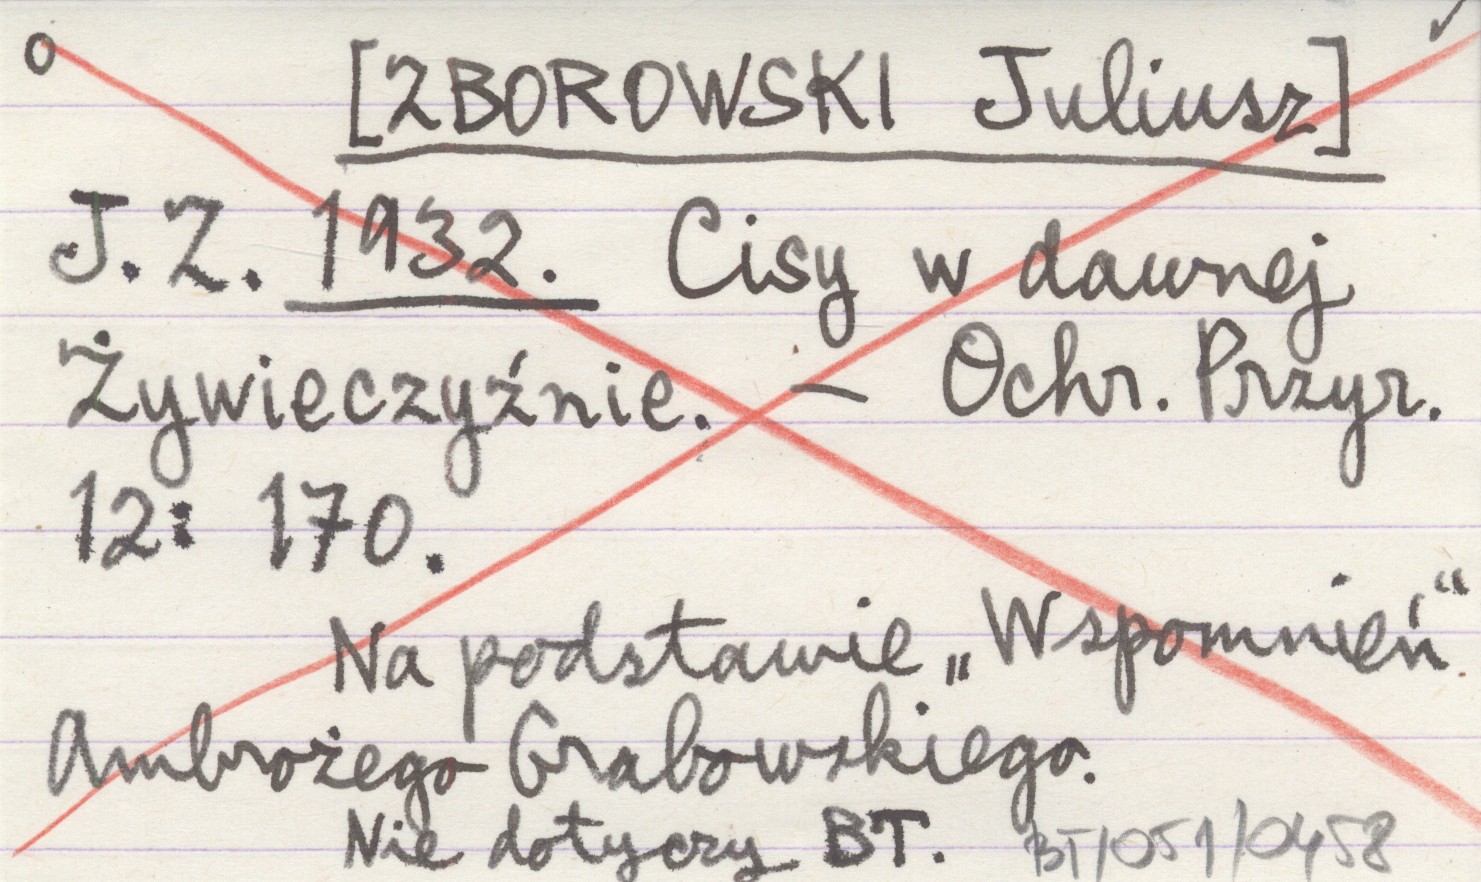 o
[ZBOROWSKI Juliusz]
J. Z. 1932. Cisy w dawnej
Żywieczyźnie. — Ochr. Przyr.
12: 170.
Na podstawie „Wspomnień“
Ambrożego Grabowskiego.
Nie dotyczy BT. BT/051/0458